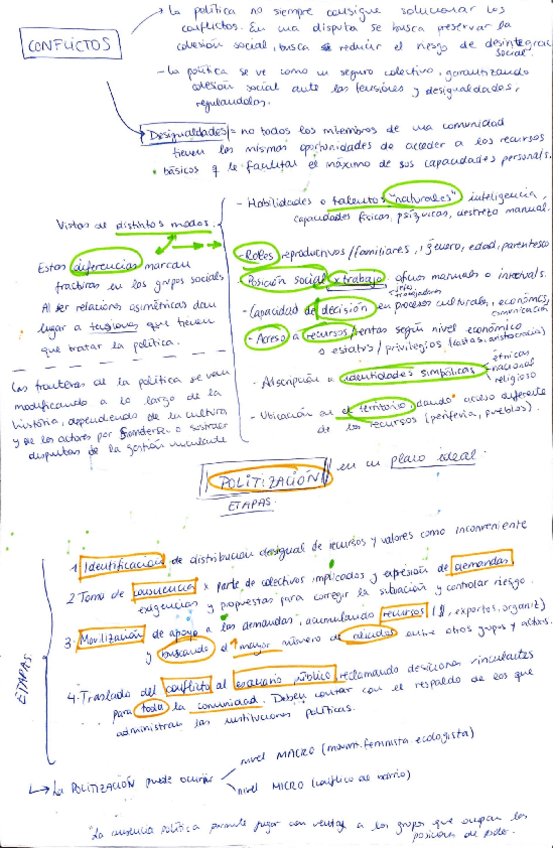 La política no siempre consigue solucionar los
conflictos. En una disputa se busca preservar la
cohesión social, busca reducir el riesgo de desintegral
social.
CONFLICTOS
- La política se ve como un seguro colectivo, garantizando
cohesión social ante las tensiones y desigualdades,
regulándolas.
Desigualdades = no todos los miembros de una comunidad
tienen las mismas oportunidades de acceder a los recursos
básicos q le facilitan el máximo de sus capacidades personals.
Vistas de distintos modos.
- Habilidades o talentos "naturales" inteligencia,
capacidades físicas, psíquicas, destreza manual.
- Roles reproductivos/familiares, género, edad, parentesco
- Posición social x trabajo. oficios manuales o
- Capacidad de decisión en procesos culturales, económcs,
comunicación
- Acceso a recursos/rentas según nivel económico
o estatus/privilegios (castas, aristocracia)
- Adscripción a identidades simbólicas
étnicas
nacional
religioso
- Ubicación en el territorio, dando acceso diferente
de los recursos (periferia, pueblos).
Estas diferencias marcan
fracturas en los grupos sociales
Al ser relaciones asimétricas dan
lugar a tensiones que tienen
que tratar la política.
Las fronteras de la política se van
modificando a lo largo de la
historia, dependiendo de la cultura
y de los actores por o sostraer
disputas de la gestión vinculante
POLITIZACIÓN en un plano ideal.
ETAPAS.
ETAPAS
1. Identificación de distribución desigual de recursos y valores como inconveniente
2. Toma de conciencia x parte de colectivos implicados y expresión de demandas,
exigencias y propuestas para corregir la situación y controlar riesgo.
3. Movilización de apoyo a las demandas, acumulando recursos (, expertos, organiz)
y buscando el mayor número de aliados entre otros grupos y actores.
4. Traslado del conflicto al escenario público, reclamando decisiones vinculantes
para toda la comunidad. Deben contar con el respaldo de los que
administran las instituciones políticas.
La POLITIZACIÓN puede ocurrir
nivel MACRO (movim. feminista ecologista)
nivel MICRO (conflico de barrio)
"La ausencia política permite jugar con ventaja a los grupos que ocupan las
posiciones de poder.